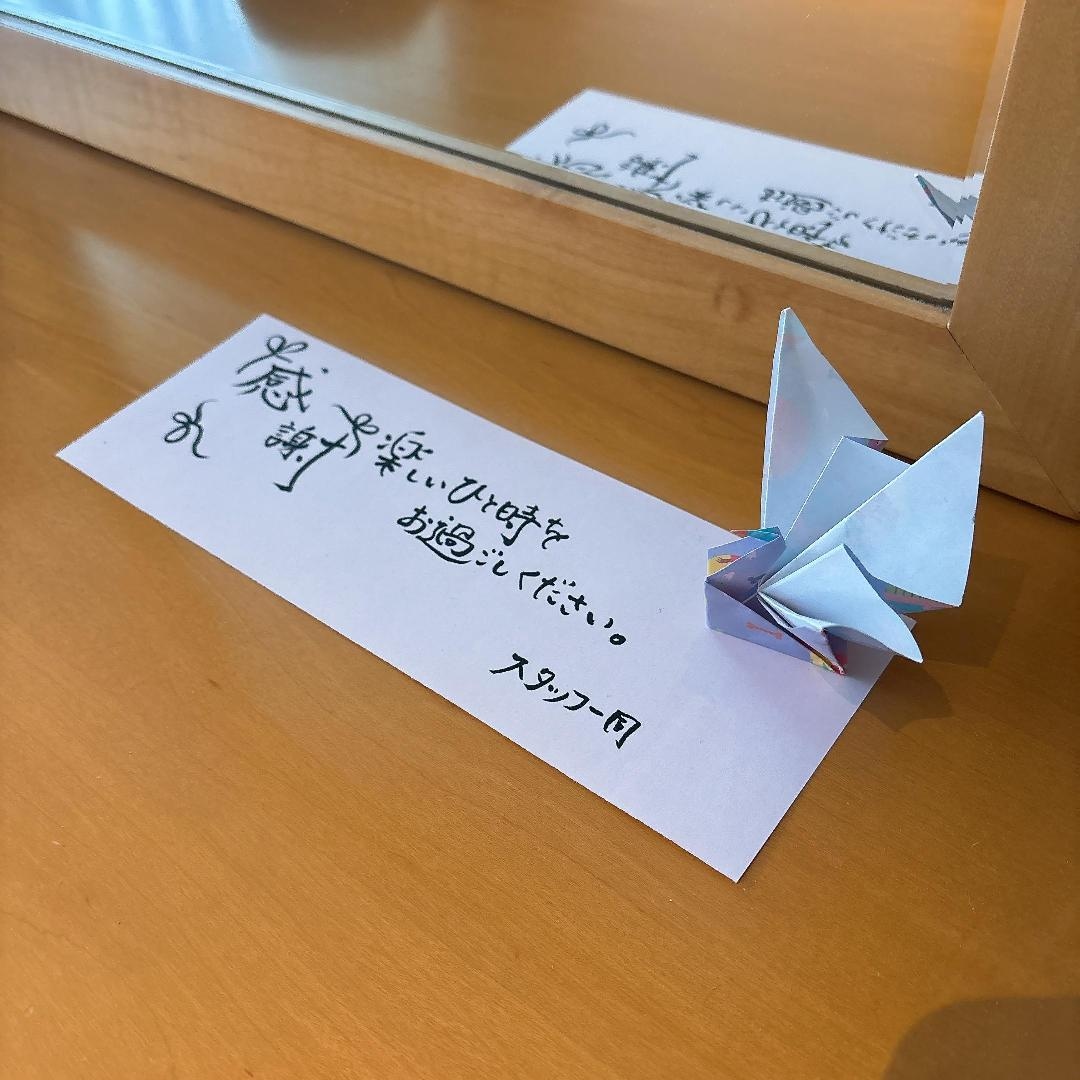 感謝
楽しいひと時を
お過ごしください。
スタッフ一同